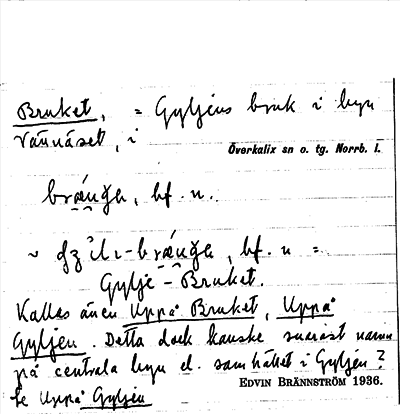 Bruket, = Gyljens bruk i byn
Vännäset, i
Överkalix sn o. tg. Norrb. l.
bf. n.
bf. n =
Gylje-Bruket.
Kallas även Uppå Bruket, Uppå
Gyljen. Detta dock kanske snarast namn
på centrala byn el. samhället i Gyljen?
Se Uppå Gyljen
EDVIN BRÄNNSTRÖM 1936.